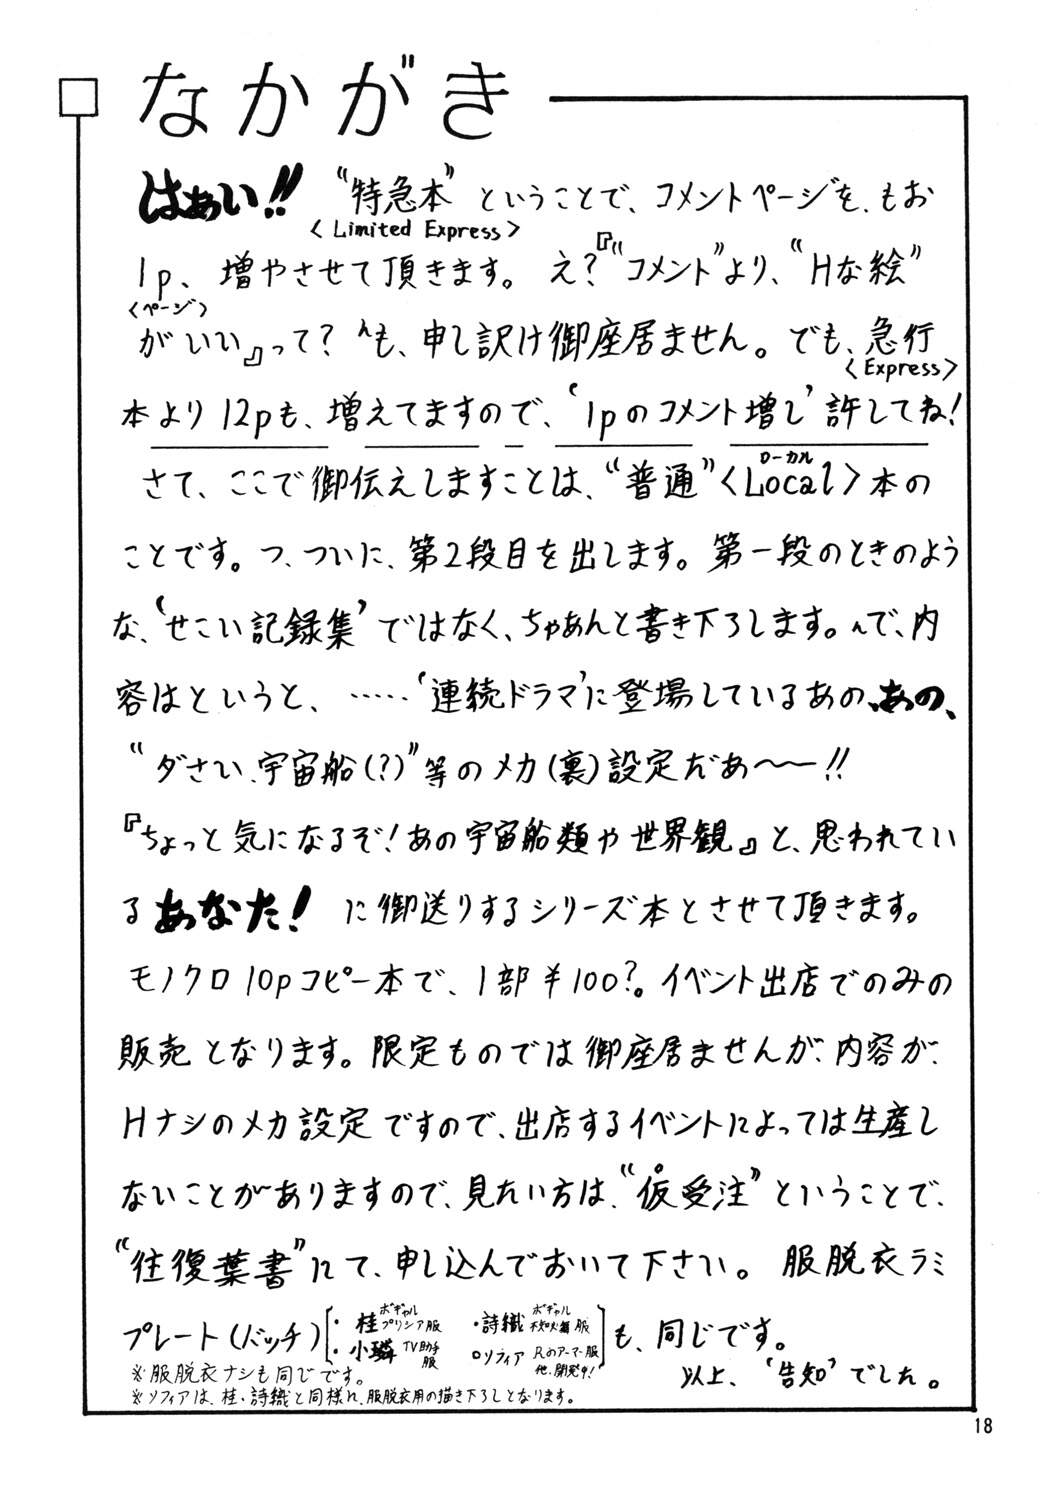 なかがき
はぁい!! “特急本”ということで、コメントページを、もお
<Limited Express>
1p、増やさせて頂きます。え?『“コメント”より、“Hな絵”
<ページ>
がいい』って? んも、申し訳け御座居ません。でも、急行
<Express>
本より12pも、増えてますので、‘1pのコメント増し’許してね!
さて、ここで御伝えしますことは、“普通”<Local>本の
ローカル
ことです。つ、ついに、第2段目を出します。第一段のときのよう
な、‘せこい記録集’ではなく、ちゃあんと書き下ろします。んで、内
容はというと、……‘連続ドラマ’に登場しているあの、あの、
“ダさい、宇宙船(?)”等のメカ(裏)設定だあ〜〜!!
『ちょっと気になるぞ!あの宇宙船類や世界観』と、思われてい
るあなた! に御送りするシリーズ本とさせて頂きます。
モノクロ10pコピー本で、1部¥100?。イベント出店でのみの
販売となります。限定ものでは御座居ませんが、内容が、
Hナシのメカ設定ですので、出店するイベントによっては生産し
ないことがありますので、見たい方は、“仮受注”ということで、
“往復葉書”にて、申し込んでおいて下さい。服脱衣ラミ
プレート(バッチ)[・桂 ボギャル プリシア服 ・詩織 ボギャル 不知火舞服
・小璘 TV助手服 ○ソフィア Rのアーマー服 他、開発中!]も、同じです。
※服脱衣ナシも同じです。
※ソフィアは、桂・詩織と同様に、服脱衣用の描き下ろしとなります。
以上、‘告知’でした。
18